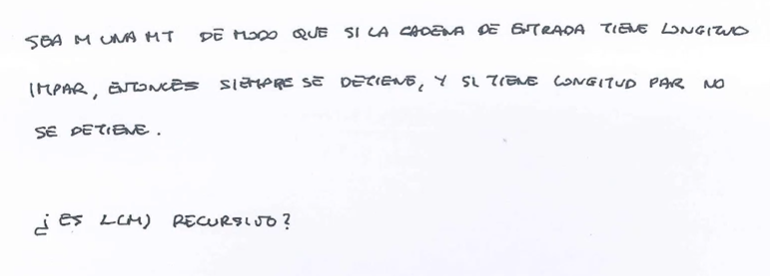 SEA M UNA MT DE MODO QUE SI LA CADENA DE ENTRADA TIENE LONGITUD
IMPAR, ENTONCES SIEMPRE SE DETIENE, Y SI TIENE LONGITUD PAR NO
SE DETIENE.
¿ES L(M) RECURSIVO?